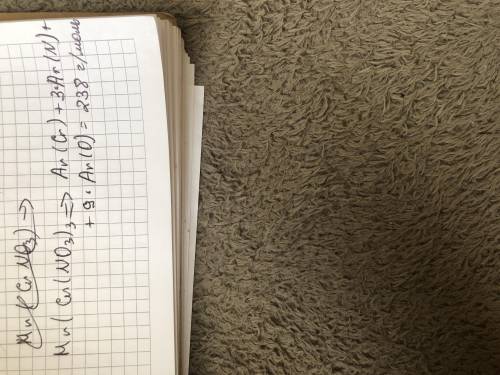 Mr(Cr NO3) =>
Mr(Cr(NO3)3 => Ar(Cr) + 3·Ar(N) +
+ 9·Ar(O) = 238 г/моль